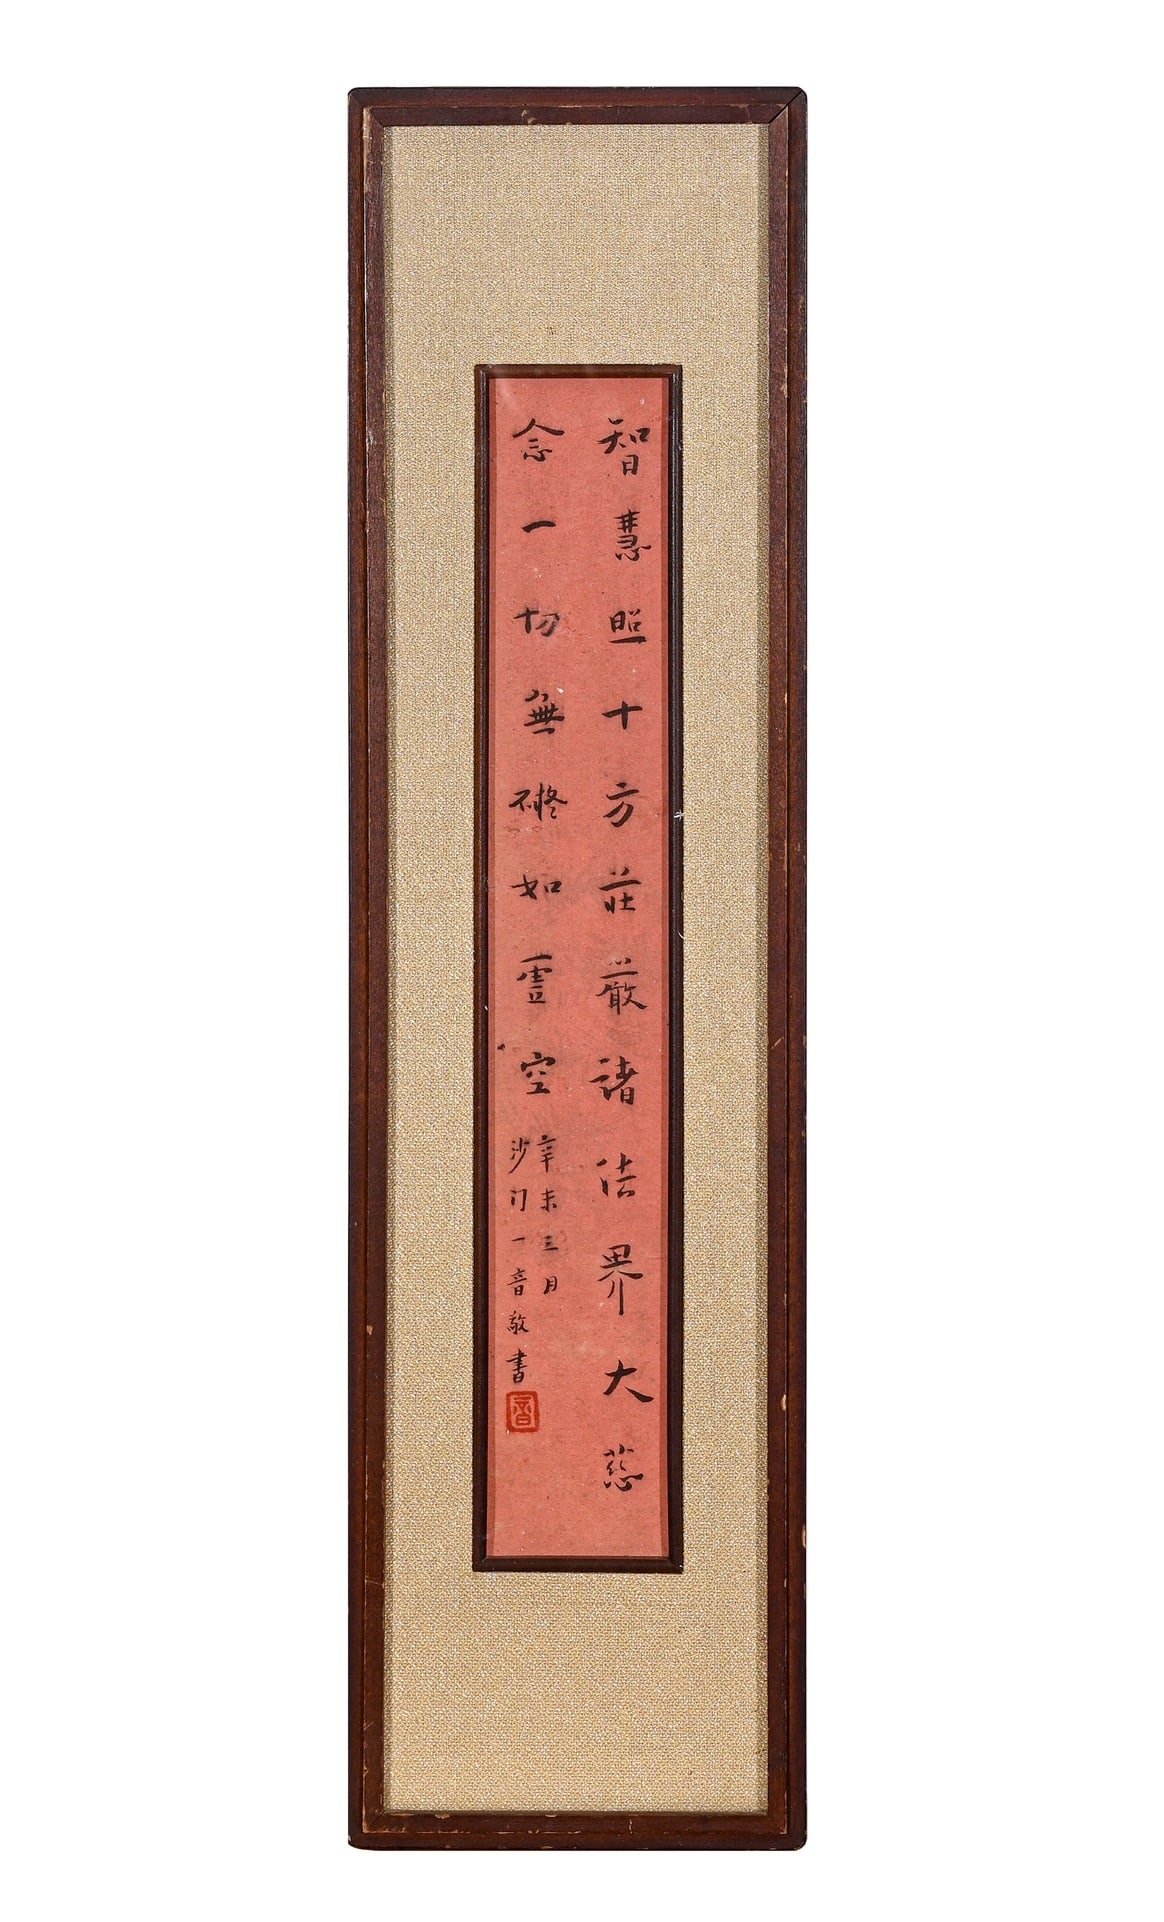 智慧照十方莊嚴諸法界大慈
念一切無礙如虛空
辛未三月
沙门一音敬書